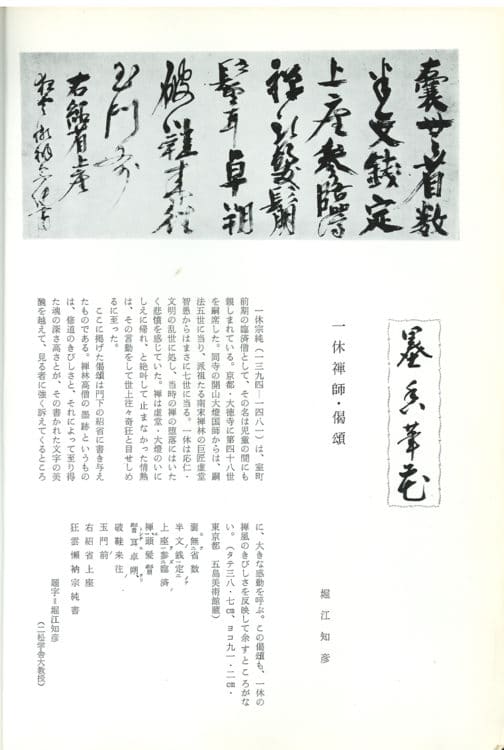 囊無省数
半文銭定
上座参臨済
禅頭髪鬅
鬙耳卓朔
破鞋来往
玉門前
右紹省上座
墨香筆花
一休禅師・偈頌
堀江知彦
一休宗純(一三九四―一四八一)は、室町
前期の臨済僧として、その名は児童の間にも
親しまれている。京都・大徳寺に第四十八世
を嗣席した。同寺の開山大燈国師からは、嗣
法五世に当り、派祖たる南宋禅林の巨匠虚堂
智愚からはまさに七世に当る。一休は応仁・
文明の乱世に処し、当時の禅の堕落にはいた
く悲憤を感じていた。禅は虚堂・大燈のいに
しえに帰れ、と絶叫して止まなかった情熱
は、その言動をして世上往々奇狂と目せしめ
るに至った。
ここに掲げた偈頌は門下の紹省に書き与え
たものである。禅林高僧の墨跡というもの
は、修道のきびしさと、それによって至り得
た魂の深さ高さとが、その書かれた文字の美
醜を越えて、見る者に強く訴えてくるところ
に、大きな感動を呼ぶ。この偈頌も、一休の
禅風のきびしさを反映して余すところがな
い。(タテ三八・七cm、ヨコ九一・二cm・
東京都 五島美術館蔵)
囊無省数
半文銭定
上座参臨済
禅頭髪鬅
鬙耳卓朔
破鞋来往
玉門前
右紹省上座
狂雲懶衲宗純書
題字=堀江知彦
(二松学舎大教授)